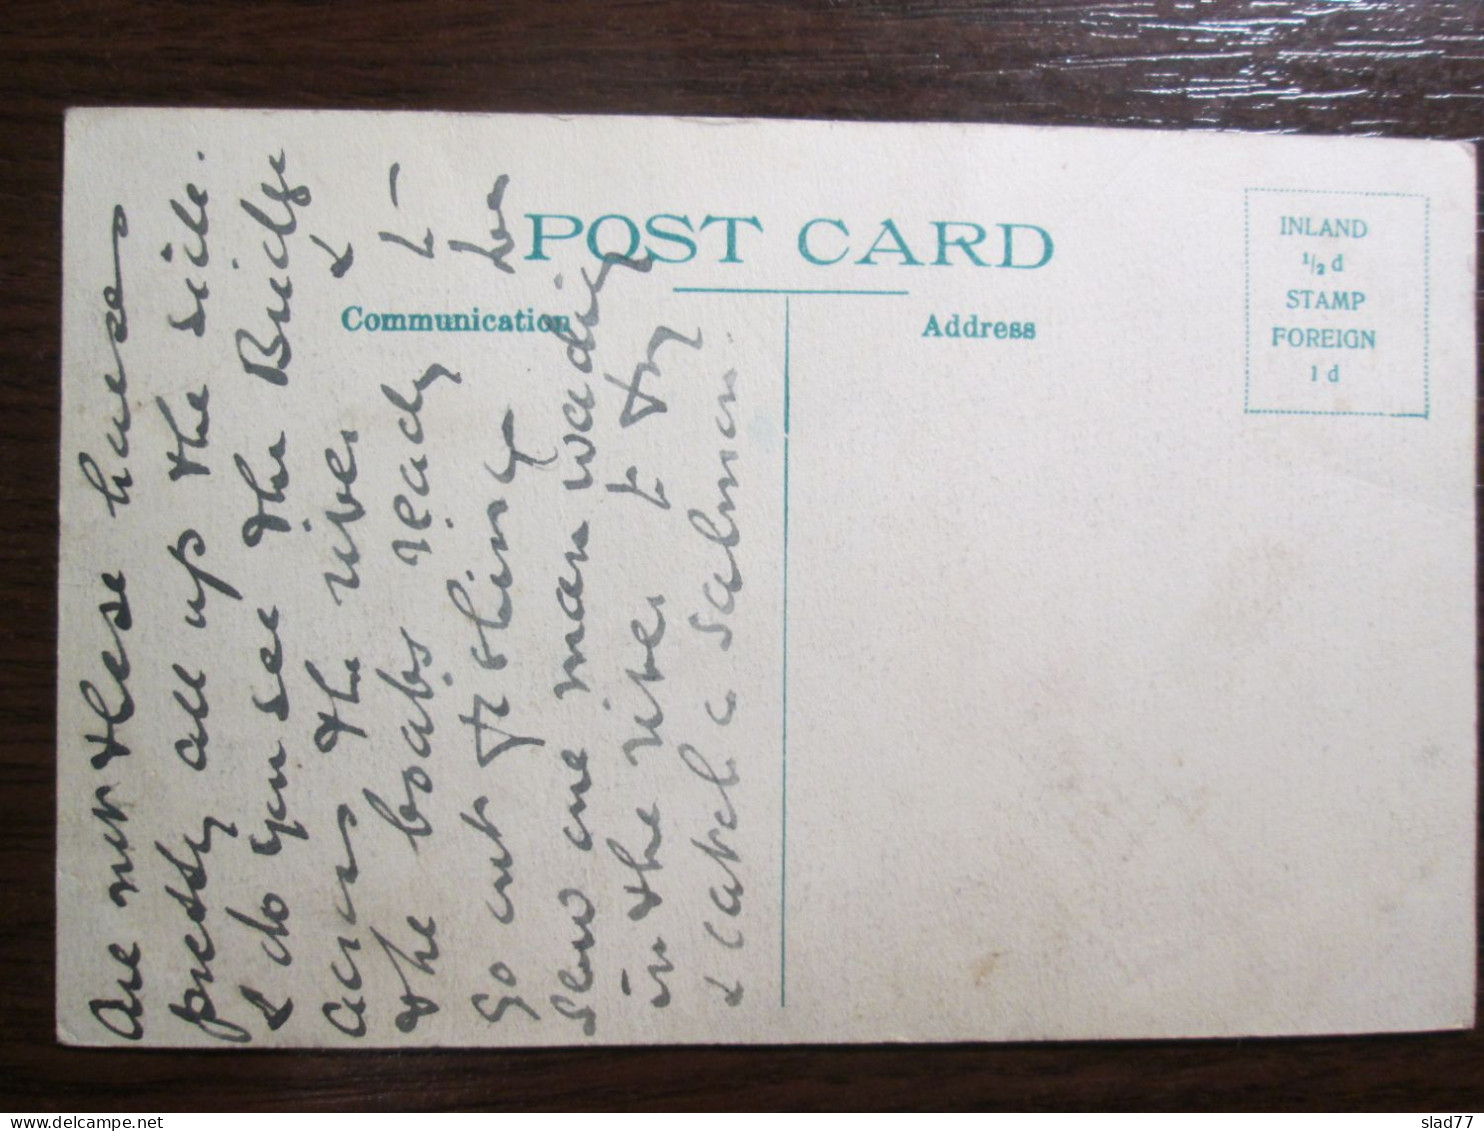 POST CARD
Communication
Address
INLAND
½ d
STAMP
FOREIGN
1 d
are not these houses
pretty all up the side.
& do you see the Bridge
across the river &
the boats ready to
go out fishing we
saw one man wading
in the river to try
& catch a salmon.
slad77